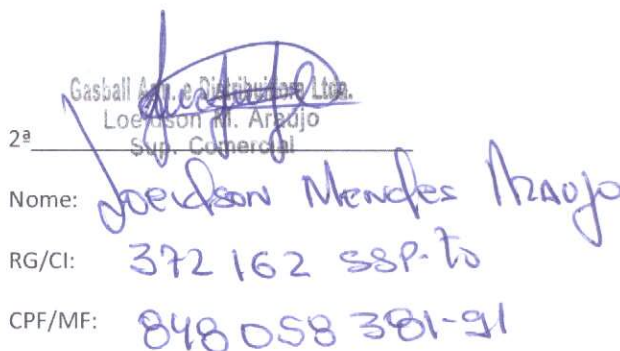 Gasball Arm. e Distribuidora Ltda.
Loeidson M. Araujo
Sup. Comercial
2ª
Nome: Loeidson Mendes Araujo
RG/CI: 372 162 SSP-TO
CPF/MF: 848 058 381-91